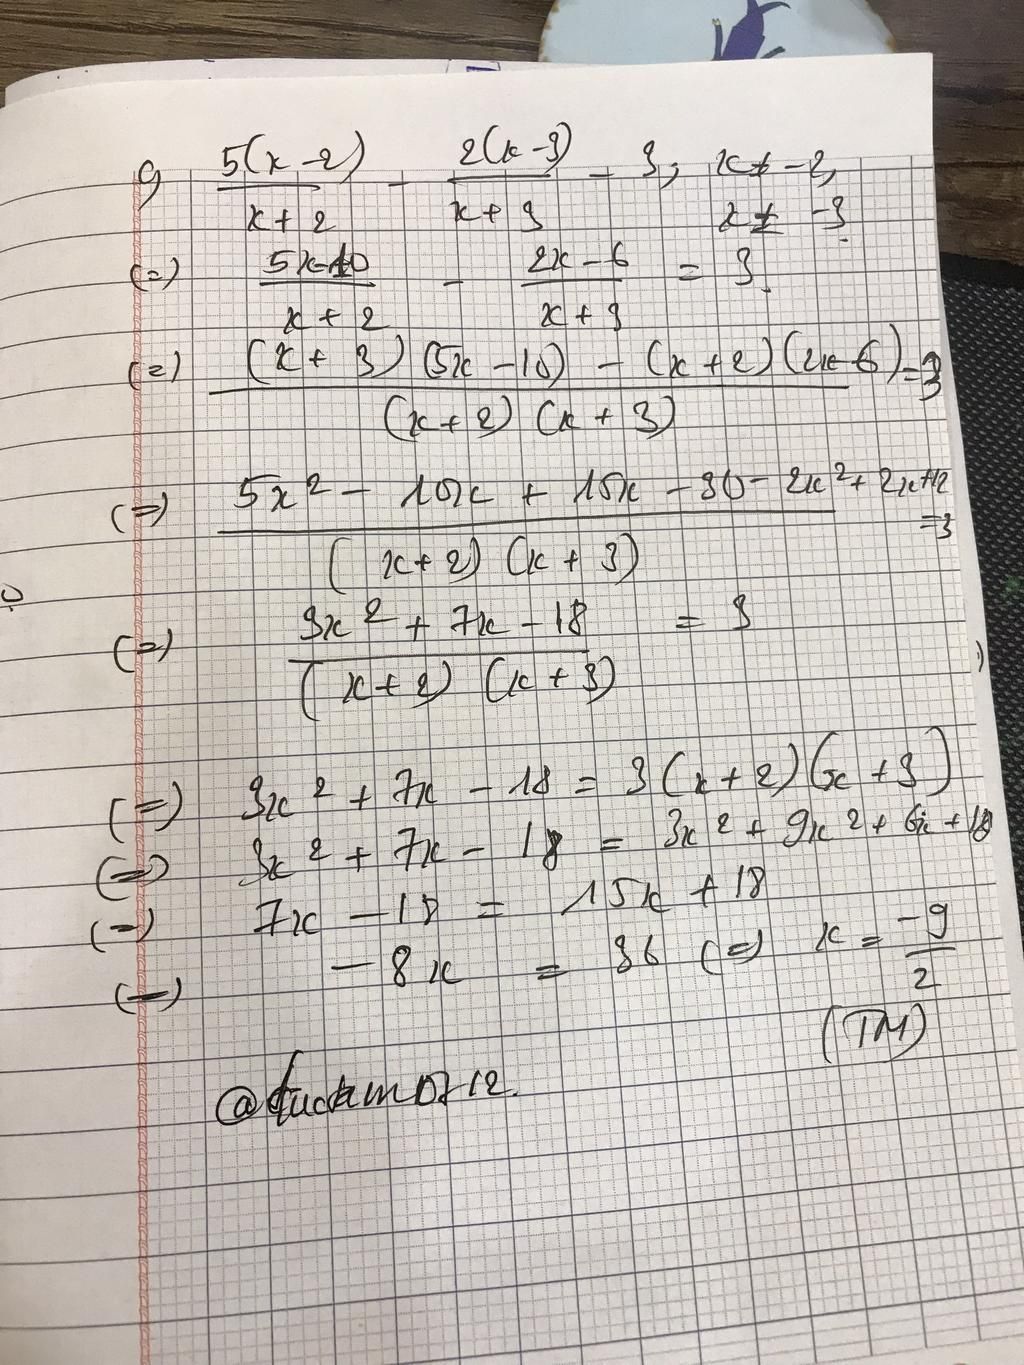 g 5(x-2)/x+2 - 2(x-3)/x+3 = 3; x ≠ -2, x ≠ -3.
(=) 5x-10/x+2 - 2x-6/x+3 = 3
(=) (x+3)(5x-10) - (x+2)(2x-6)/(x+2)(x+3) = 3
(=) 5x² - 10x + 15x - 30 - 2x² + 2x + 12/(x+2)(x+3) = 3
(=) 3x² + 7x - 18/(x+2)(x+3) = 3
(=) 3x² + 7x - 18 = 3(x+2)(x+3)
(=) 3x² + 7x - 18 = 3x² + 9x² + 6x + 18
(=) 7x - 18 = 15x + 18
(=) -8x = 36 (=) x = -9/2
(TM)